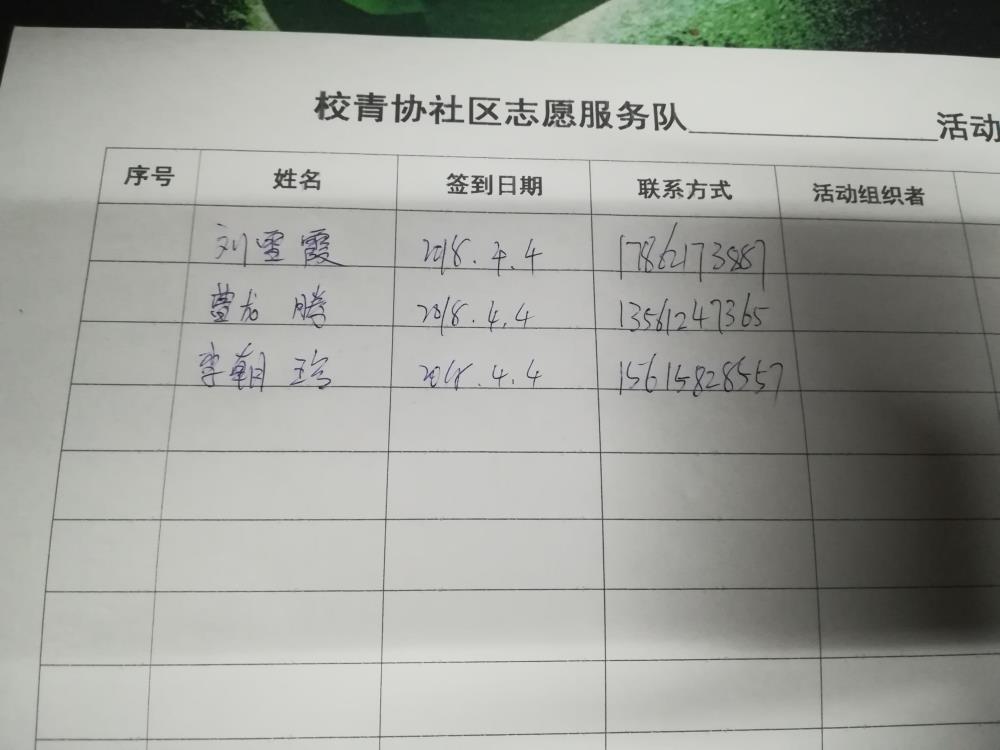 校青协社区志愿服务队____________活动
序号 姓名 签到日期 联系方式 活动组织者
刘雪霞 2018.4.4 17862173887
曹龙腾 2018.4.4 13561247365
李朝玲 2018.4.4 15615828557